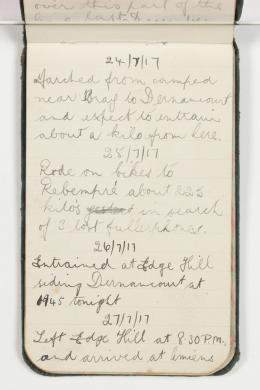 over this part of the
24/7/17
Marched from camped
near Bray to Dernancourt
and expect to entrain
about a kilo from here.
25/7/17
Rode on bikes to
Rebempré about 22½
kilo's in search
of 3 lost fullerphones.
26/7/17
Entrained at Edge Hill
siding Dernancourt at
1945 tonight
27/7/17
Left Edge Hill at 8.30 P.M.
and arrived at Amiens